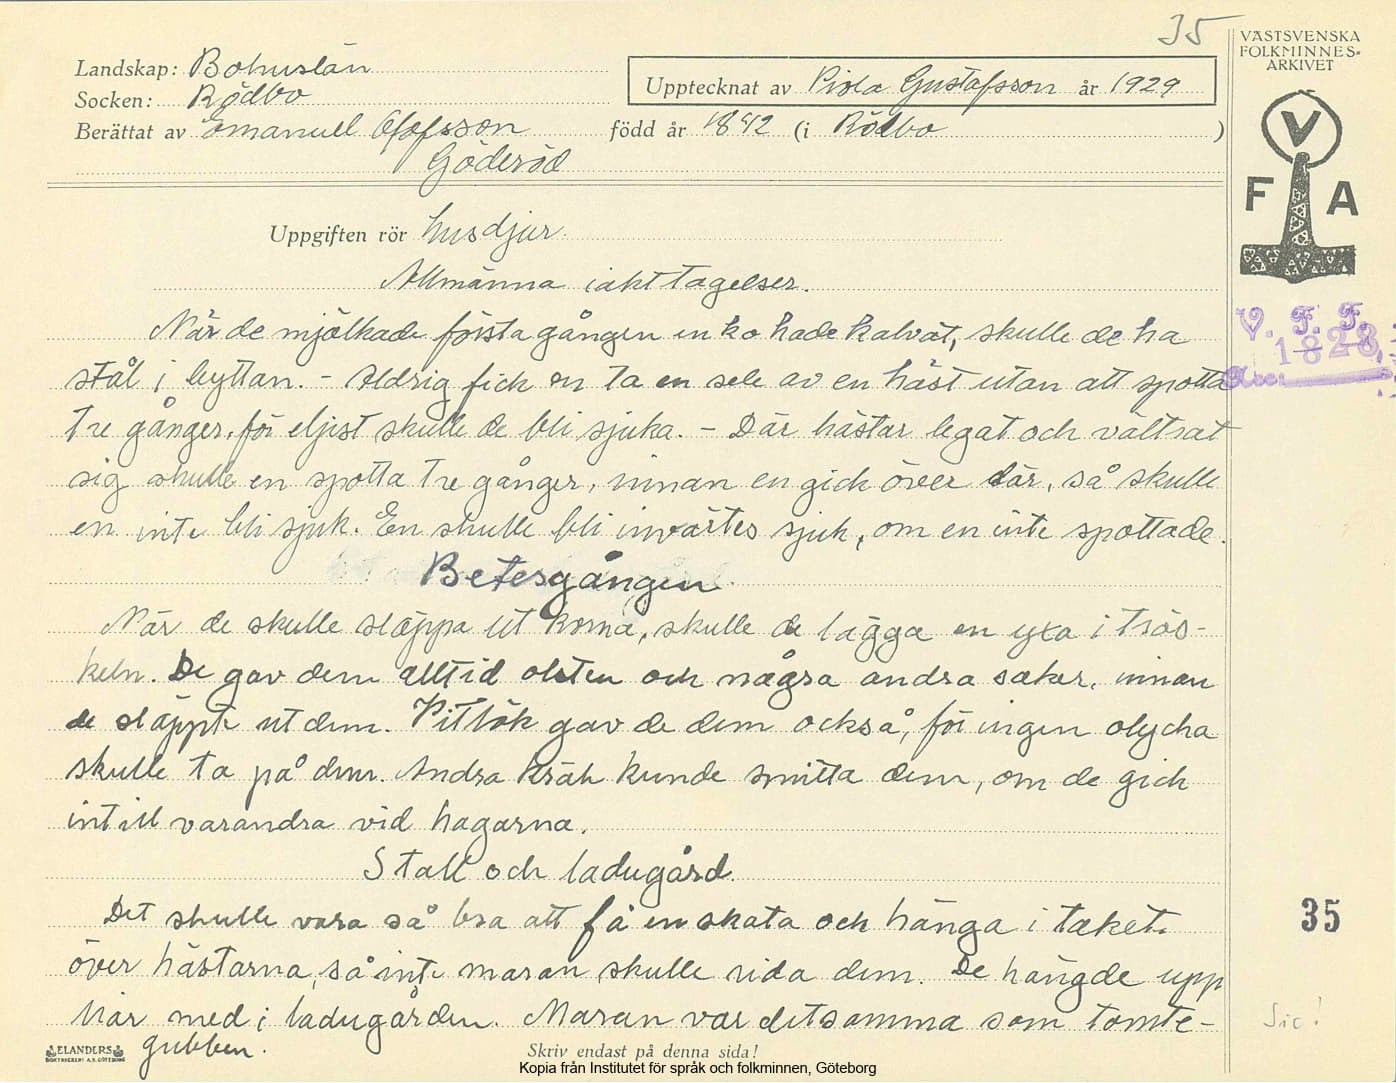 35
VÄSTSVENSKA
FOLKMINNES-
ARKIVET
Landskap: Bohuslän
Upptecknat av Viola Gustafsson år 1929
Socken: Rödbo
Berättat av Emanuel Olofsson född år 1842 (i Rödbo )
Göderöd
V
F A
Uppgiften rör husdjur.
Allmänna iakttagelser.
V. F. F.
1828
När de mjölkade första gången en ko hade kalvat, skulle de ha
stål i byttan. - Aldrig fick en ta en sele av en häst utan att spotta
tre gånger, för eljest skulle de bli sjuka. - Där hästar legat och vältrat
sig skulle en spotta tre gånger, innan en gick över där, så skulle
en inte bli sjuk. En skulle bli invärtes sjuk, om en inte spottade.
Betesgången
När de skulle släppa ut korna, skulle de lägga en yxa i trös-
keln. De gav dem alltid olsten och några andra saker, innan
de släppte ut dem. Vitlök gav de dem också, för ingen olycka
skulle ta på dem. Andra kräk kunde smitta dem, om de gick
intill varandra vid hagarna.
Stall och ladugård.
Det skulle vara så bra att få en skata och hänga i taket
över hästarna, så inte maran skulle rida dem. De hängde upp
här med i ladugården. Maran var detsamma som tomte-
gubben.
35
Sic!
ELANDERS
BOKTRYCKERI A.B. GÖTEBORG
Skriv endast på denna sida!
Kopia från Institutet för språk och folkminnen, Göteborg